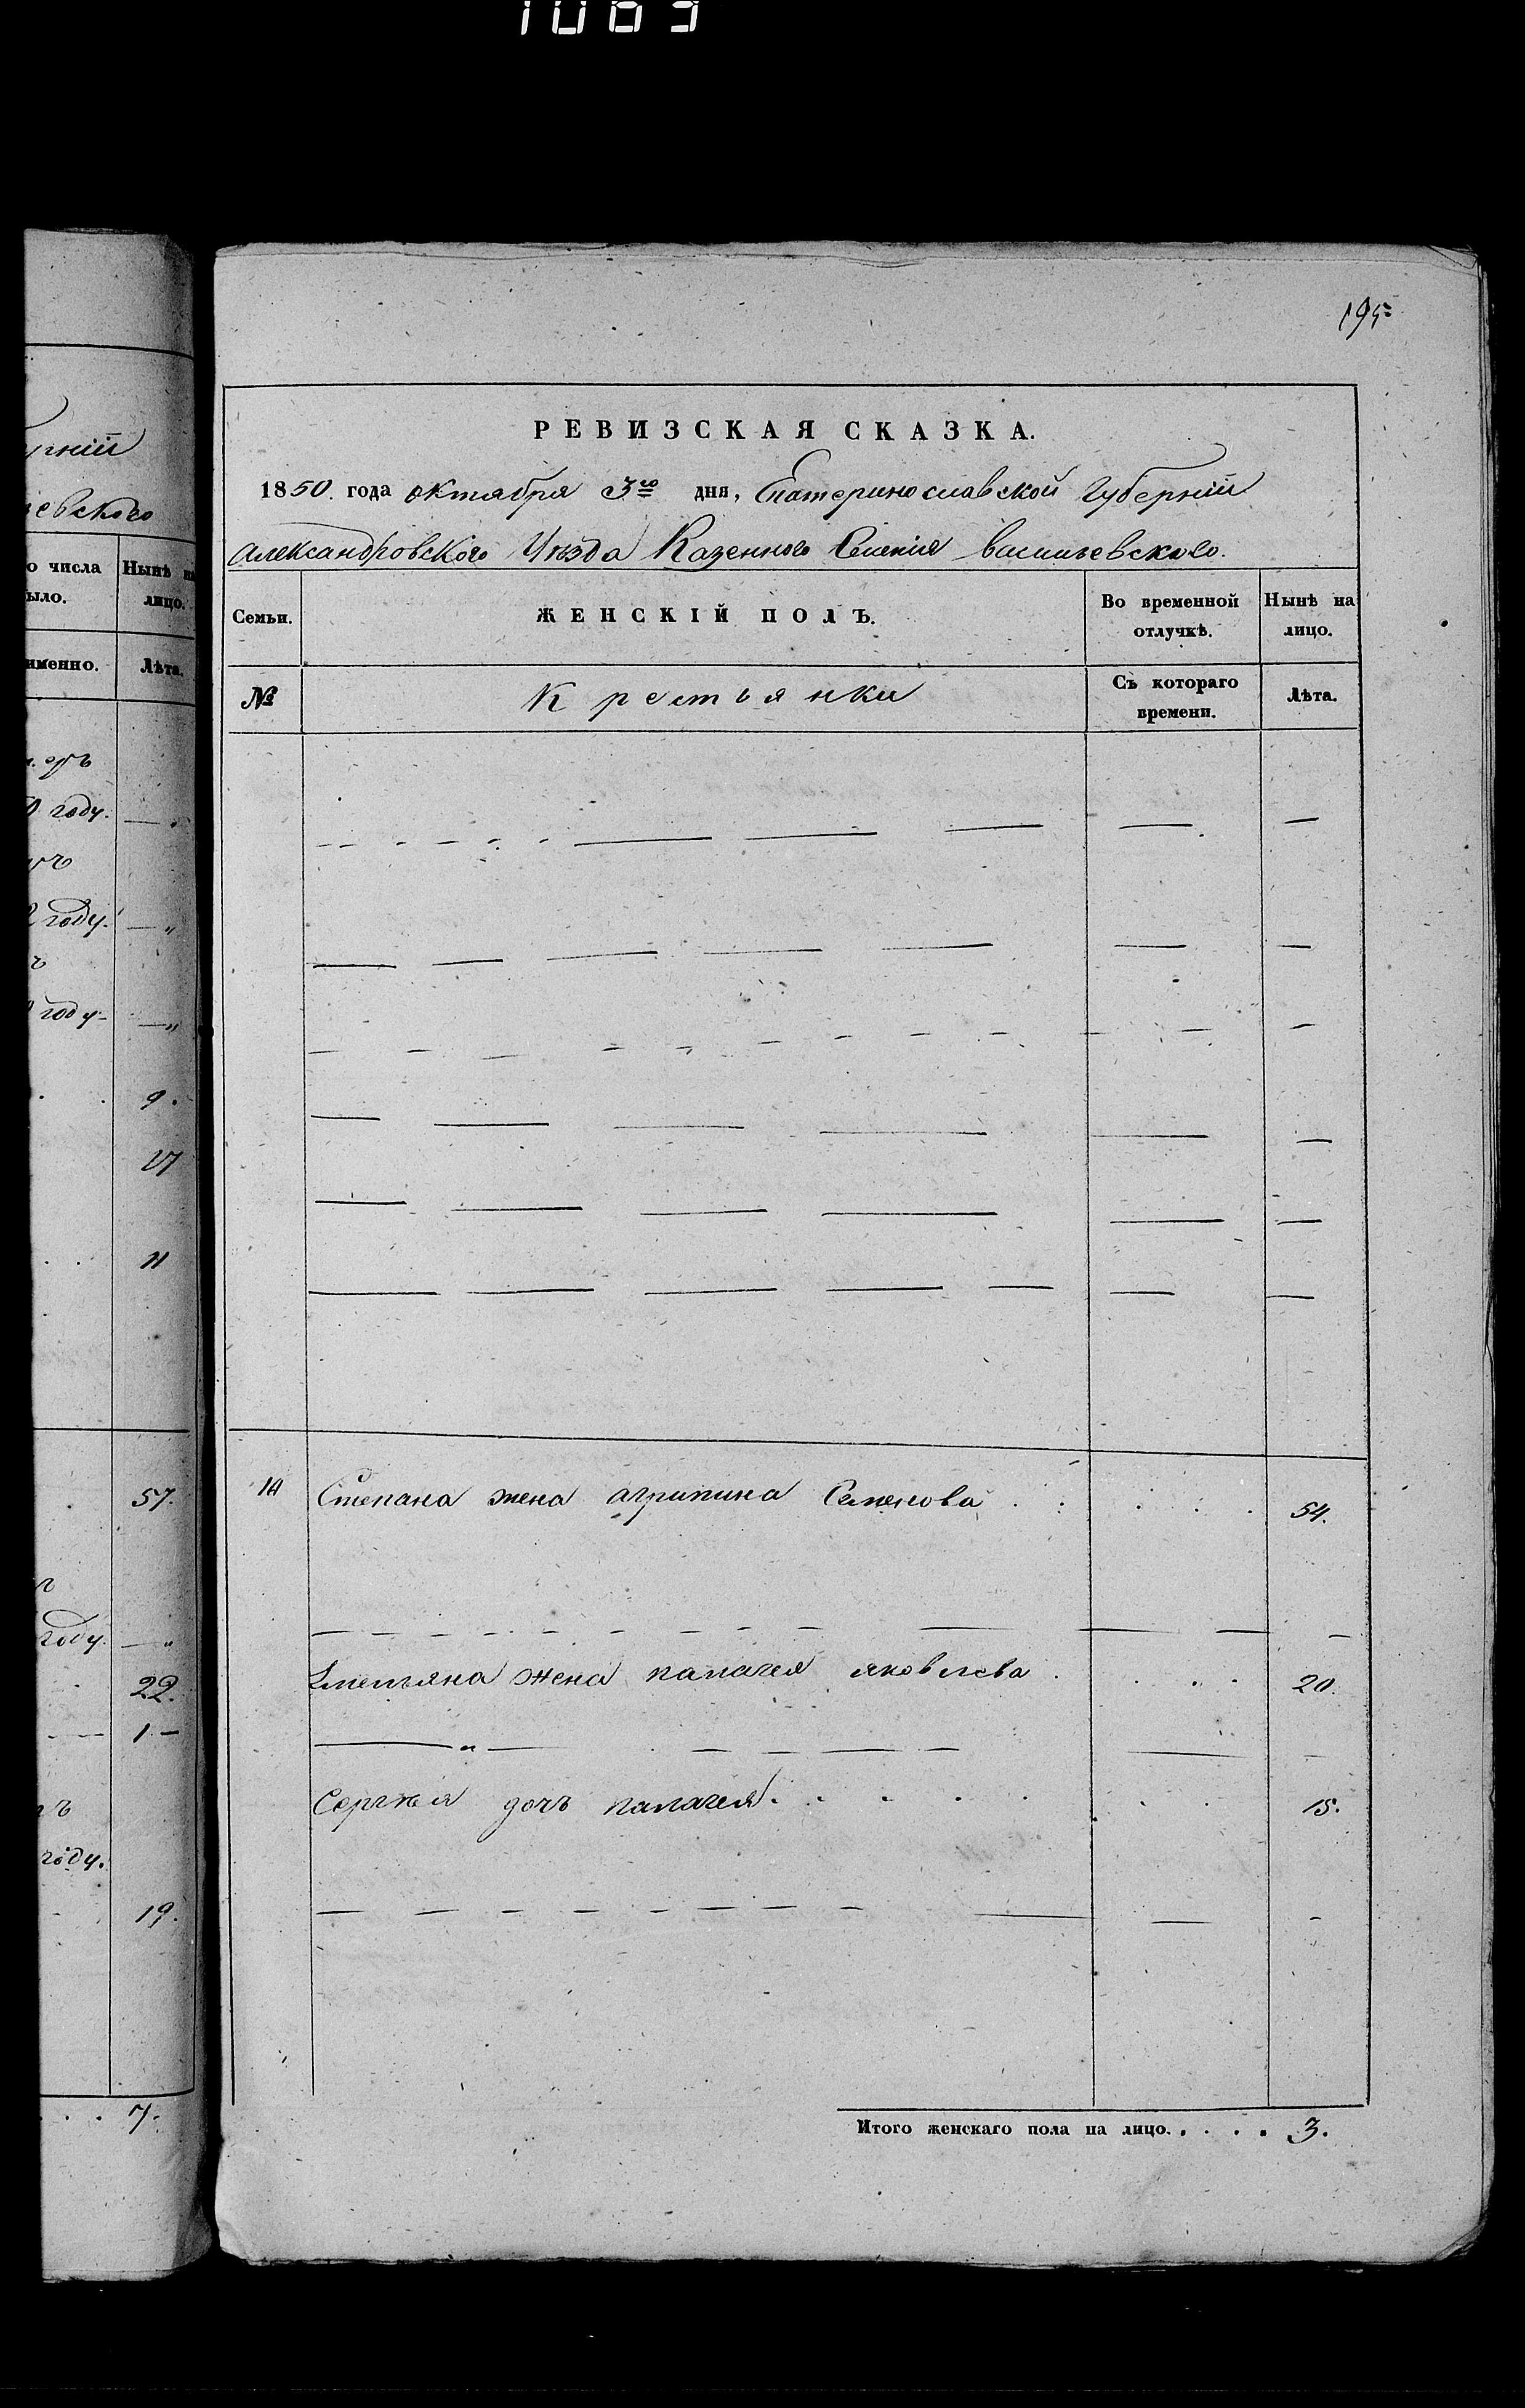 1083
195
РЕВИЗСКАЯ СКАЗКА.
1850. года октября 3го дня, Екатеринославской Губерніи
Александровского Уѣзда Казенного Селенія васильевского.
Семьи.
ЖЕНСКІЙ ПОЛЪ.
Во временной отлучкѣ.
Нынѣ на лицо.
№
Крестьянки
Съ котораго времени.
Лѣта.
14 Степана жена агрипина Семенова . : . . . 54.
Емельяна жена палагея яковлева . . . . 20.
Сергѣя дочь палагея . . . . . . . 15.
Итого женскаго пола на лицо. . . . . 3.
рніи
іевского
о числа
ыло.
Нынѣ на
лицо.
именно.
Лѣта.
году.
году.
году
9.
17
11
57.
году.
22.
1.
году.
19.
. . 7.